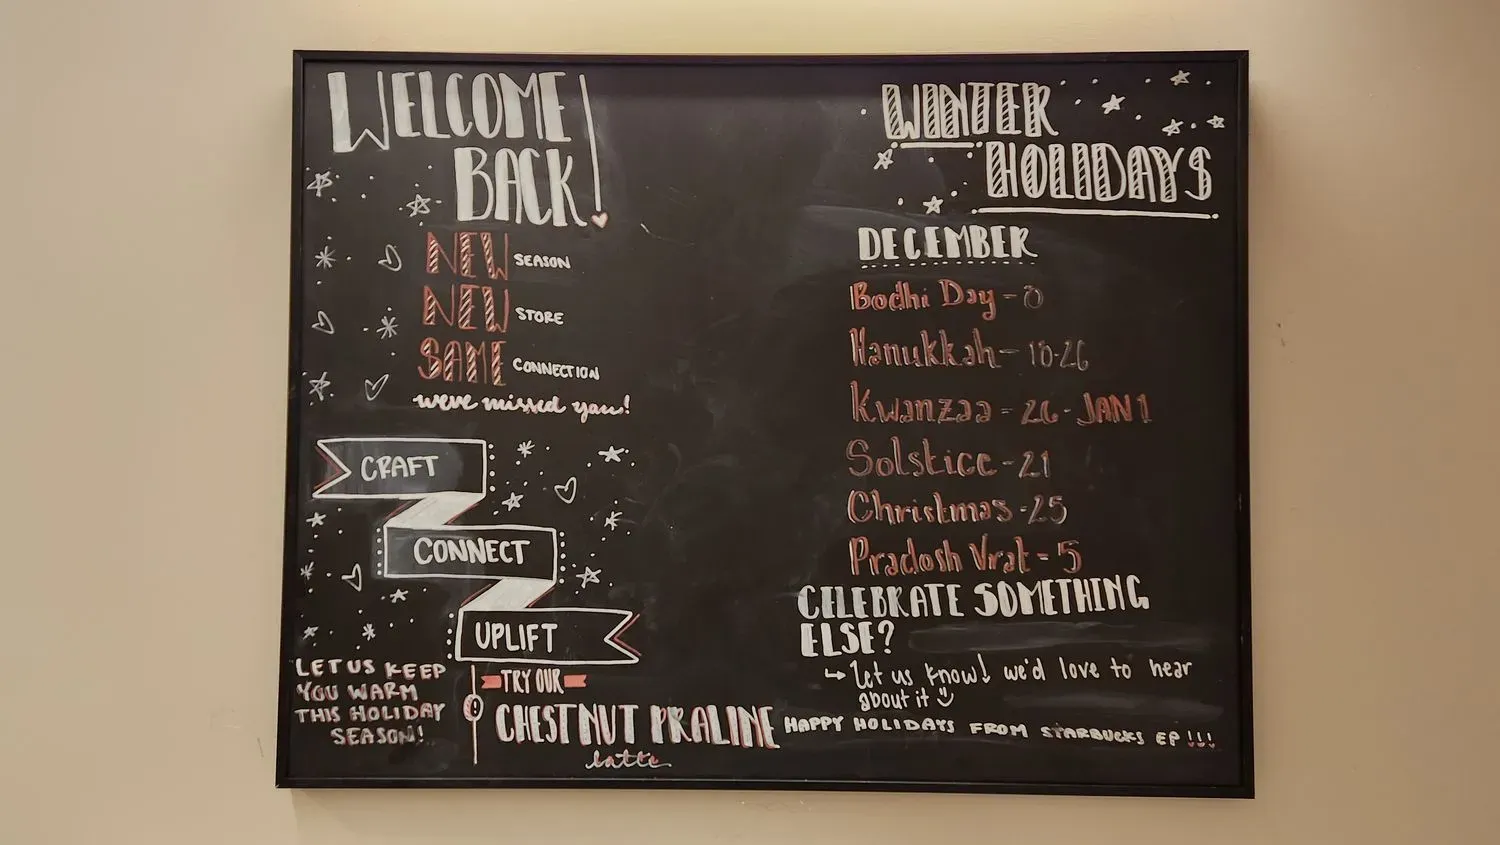 WELCOME
BACK!
NEW SEASON
NEW STORE
SAME CONNECTION
we've missed you!
CRAFT
CONNECT
UPLIFT
LET US KEEP
YOU WARM
THIS HOLIDAY
SEASON!
TRY OUR
CHESTNUT PRALINE
latte
WINTER
HOLIDAYS
DECEMBER
Bodhi Day -
Hanukkah - 18-26
Kwanzaa - 26 - JAN 1
Solstice - 21
Christmas - 25
Pradosh Vrat - 5
CELEBRATE SOMETHING
ELSE?
Let us know! we'd love to hear
about it
HAPPY HOLIDAYS FROM STARBUCKS EP!!!